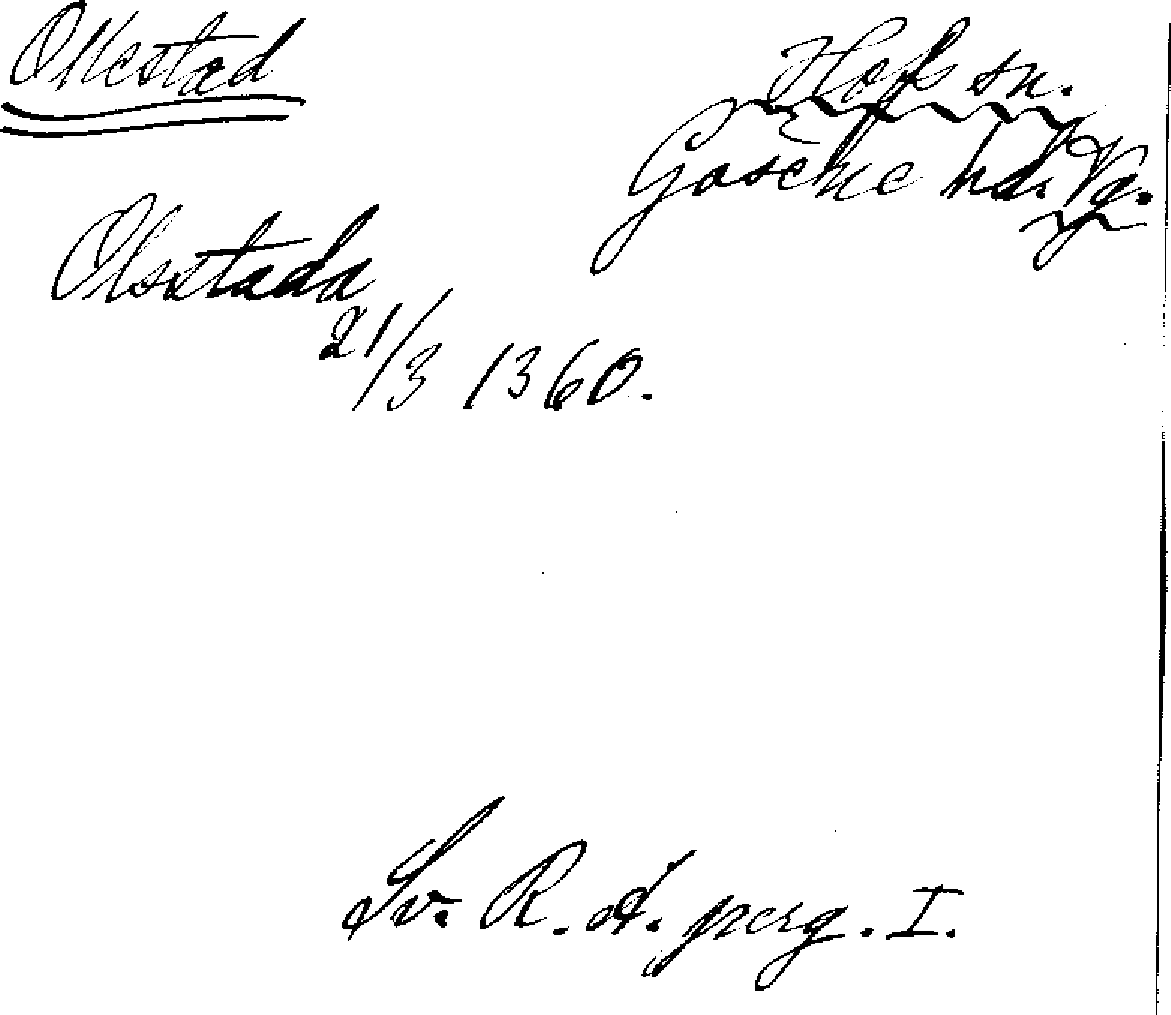 Ollestad
Hofs sn.
Gäsene hd. Vg.
Olsstada
21/3 1360.
Sv. R. A. perg. I.